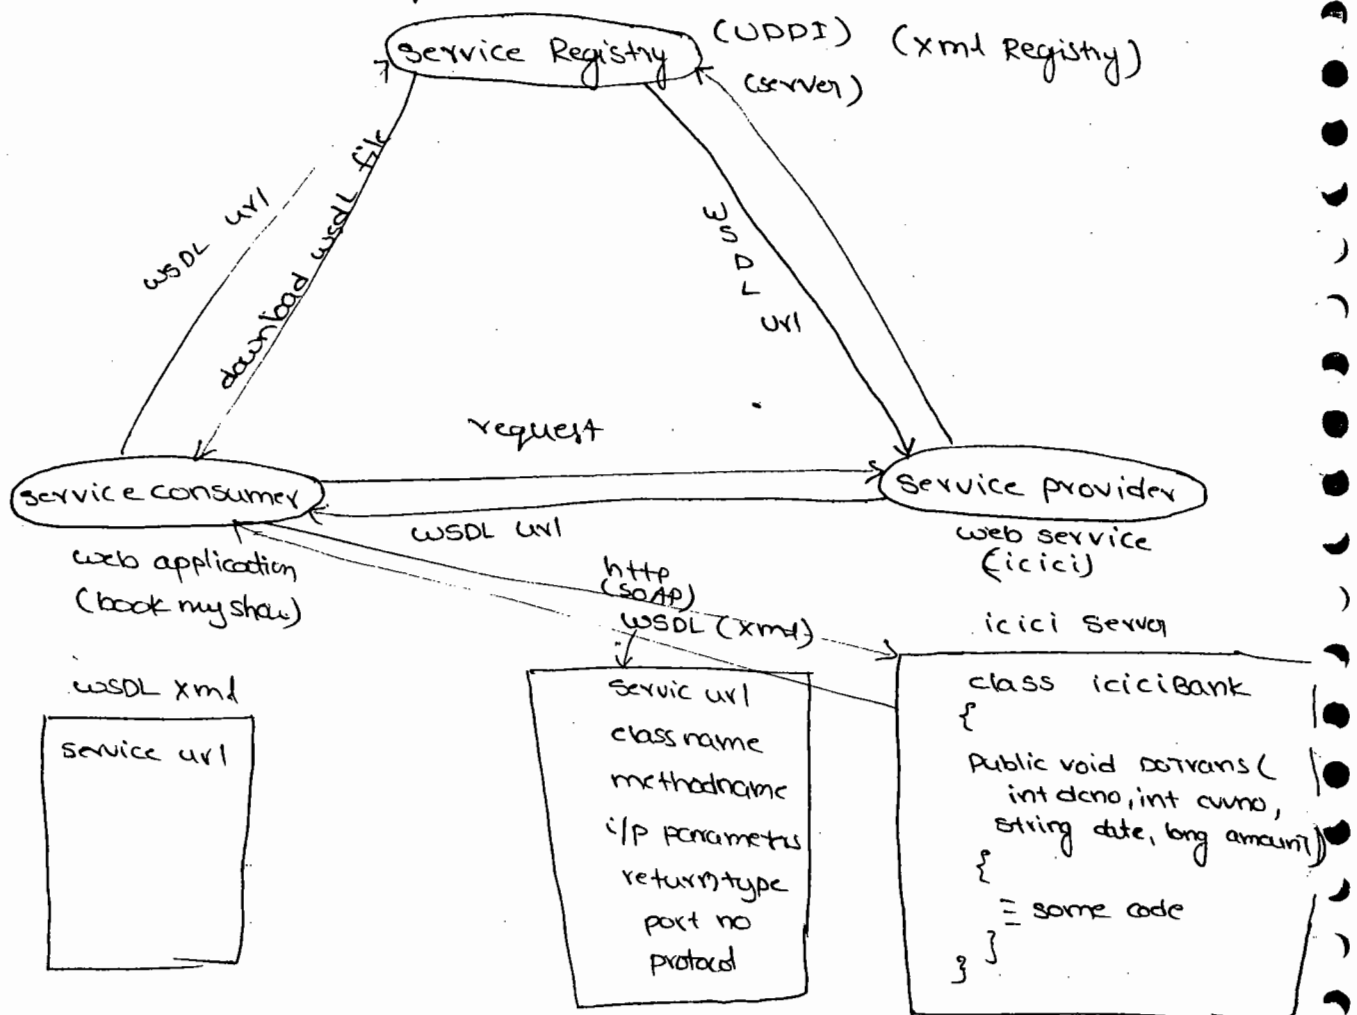 Service Registry
(UDDI) (xml Registry)
(server)
WSDL url
download wsdL file
WSDL url
request
service consumer
service provider
WSDL url
web application
(book my show)
web service
(icici)
http
(SOAP)
WSDL (xml)
icici server
WSDL xml
service url
servic url
class name
methodname
i/p parameters
return type
port no
protocol
class iciciBank
{
public void DoTrans(
int dcno, int cvvno,
string date, long amount)
{
some code
}
}